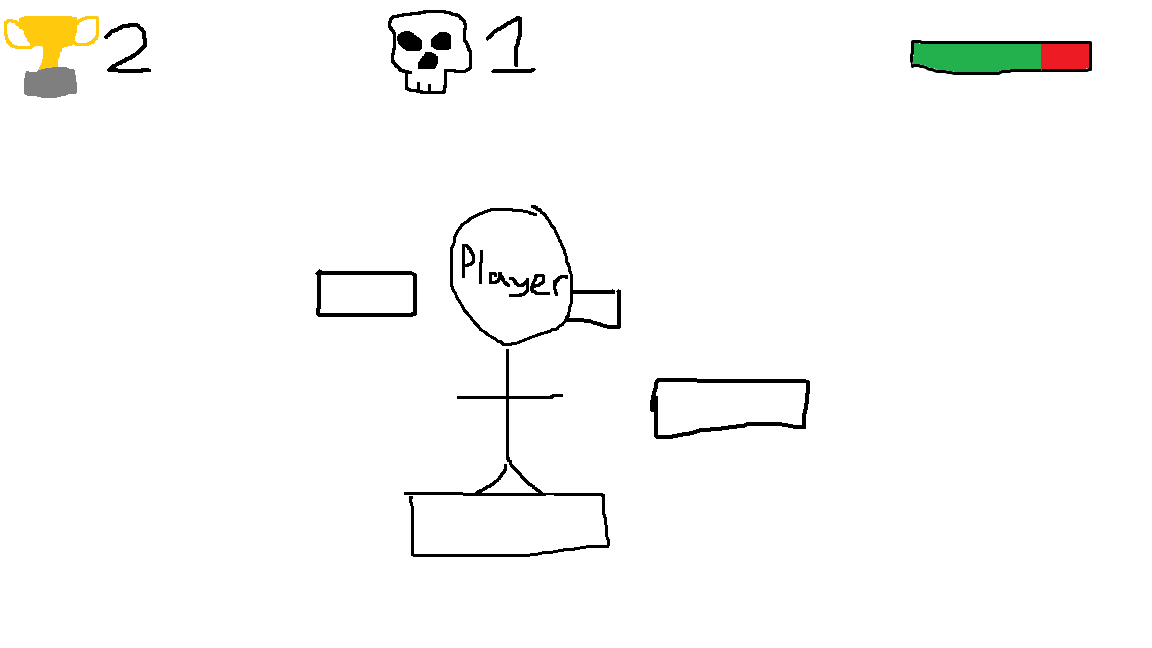 2 1
Player